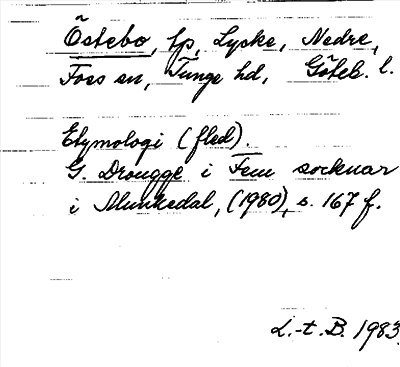 Östebo, lp, Lycke, Nedre,
Foss sn, Tunge hd, Göteb. l.
Etymologi (fled).
G. Drougge i Fem socknar
i Munkedal, (1980), s. 167 f.
L.-t. B. 1983.